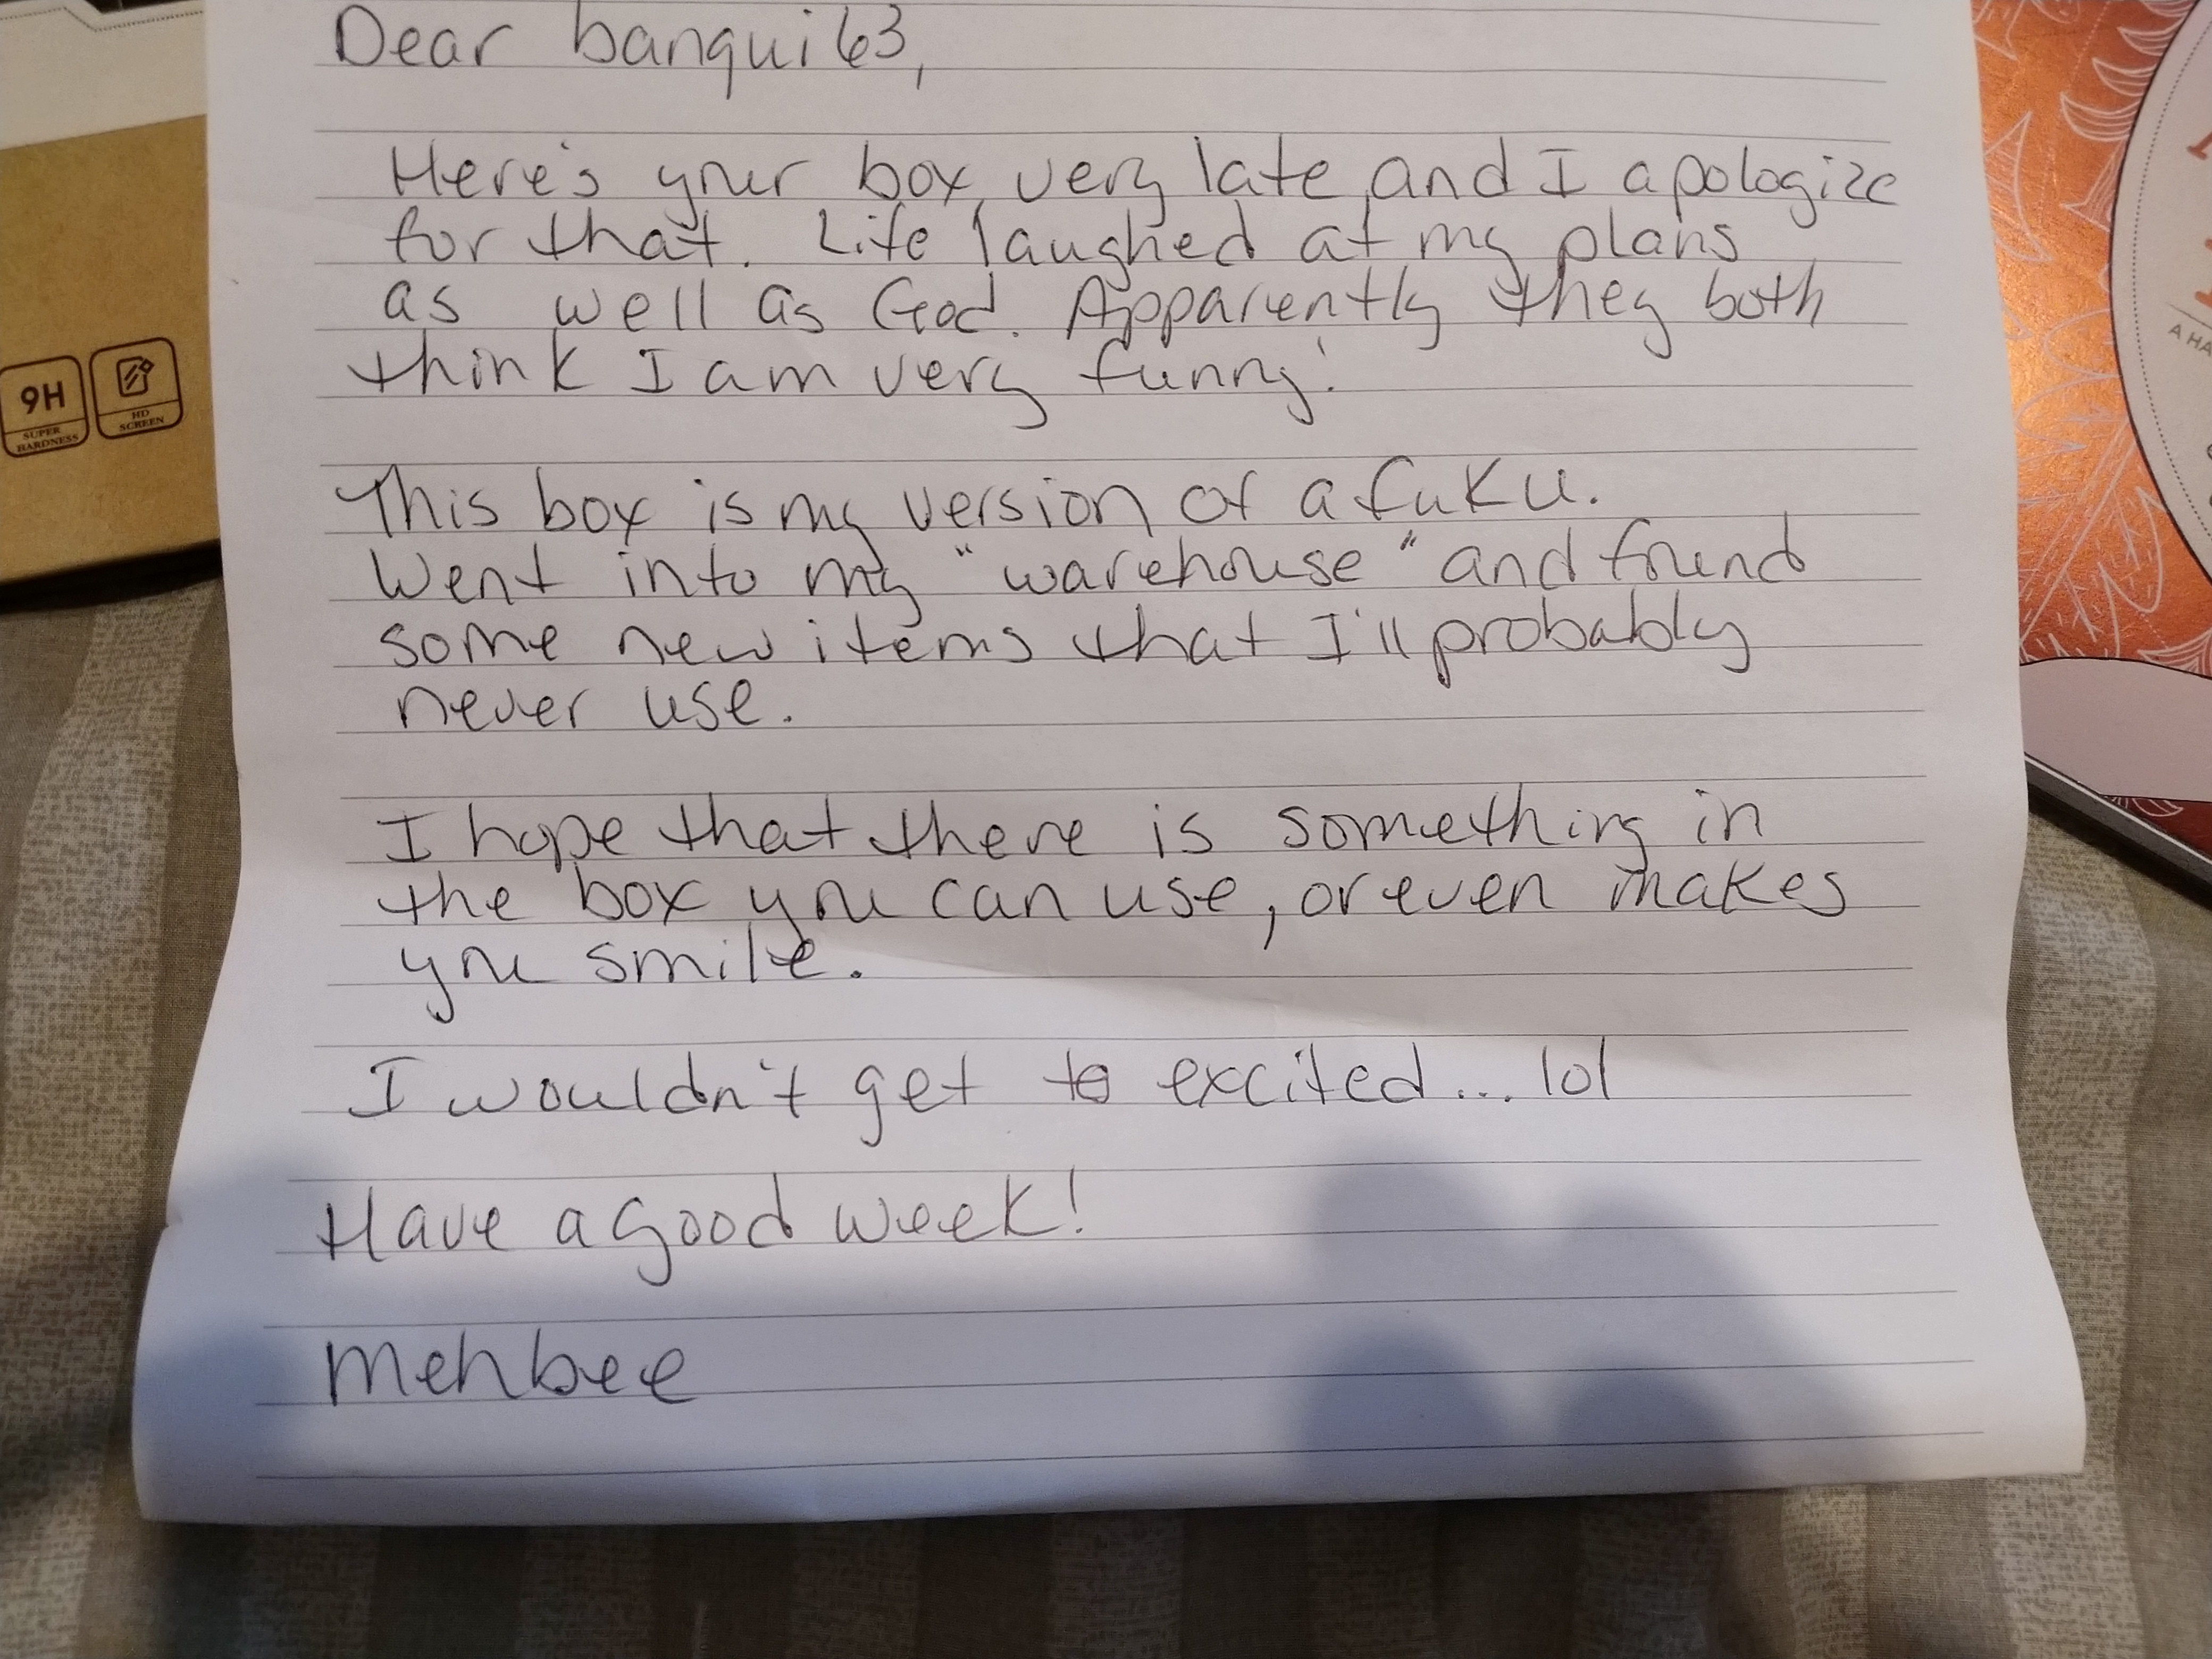 Dear banqui63,
Here's your box, very late, and I apologize
for that. Life laughed at my plans
as well as God. Apparently they both
think I am very funny!
This box is my version of a fuku.
Went into my "warehouse" and found
some new items that I'll probably
never use.
I hope that there is something in
the box you can use, or even makes
you smile.
I wouldn't get to excited... lol
Have a good week!
Mehbee
9H
SUPER
HARDNESS
HD
SCREEN